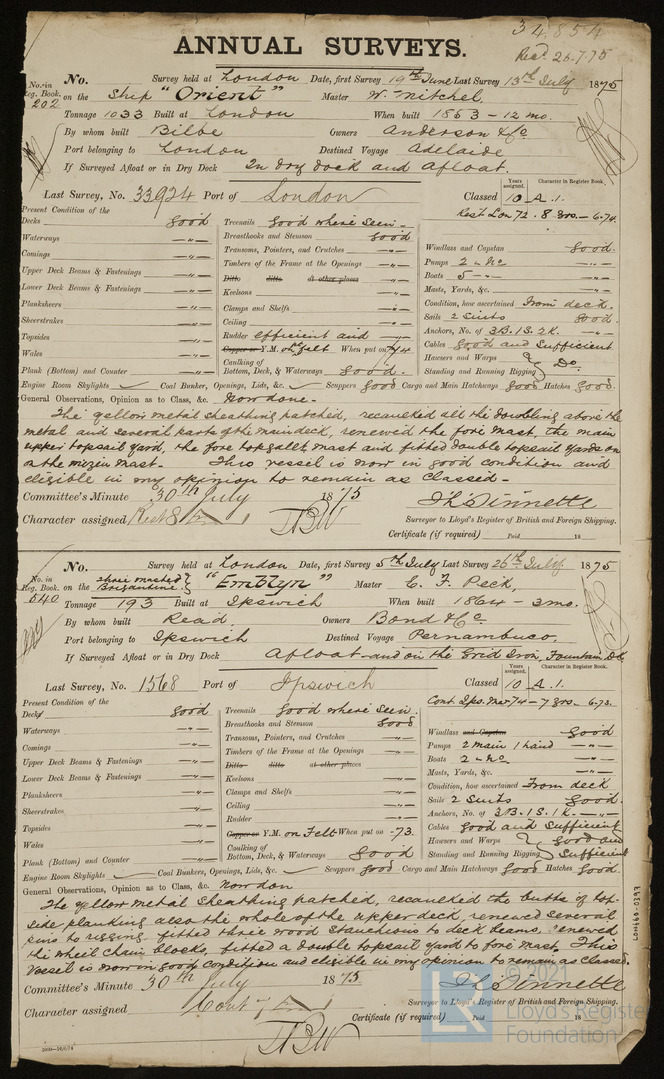 34,854
ANNUAL SURVEYS.
Recd 26.7.75
No. in Reg. Book.
202
No. Survey held at London Date, first Survey 19th June Last Survey 13th July 1875
on the Ship "Orient" Master W. Mitchel
Tonnage 1033 Built at London When built 1853 - 12 mo.
By whom built Bilbe Owners Anderson & Co
Port belonging to London Destined Voyage Adelaide
If Surveyed Afloat or in Dry Dock In dry dock and afloat.
Last Survey, No. 33924 Port of London
Years assigned. Character in Register Book.
Classed 10 A.1.
Rest Lon 72 - 8 yrs - 6.74
Present Condition of the
Decks good
Waterways -"-
Comings -"-
Upper Deck Beams & Fastenings -"-
Lower Deck Beams & Fastenings -"-
Planksheers -"-
Sheerstrakes -"-
Topsides -"-
Wales -"-
Plank (Bottom) and Counter -"-
Treenails good where seen -
Breasthooks and Stemson good
Transoms, Pointers, and Crutches -"-
Timbers of the Frame at the Openings -"-
Ditto ditto at other places
Keelsons -"-
Clamps and Shelfs -"-
Ceiling -"-
Rudder efficient and -"-
Copper or Y.M. on felt When put on 7/74
Caulking of Bottom, Deck, & Waterways good.
Windlass and Capstan good.
Pumps 2 - do -"-
Boats 5 -"-
Masts, Yards, &c. -"-
Condition, how ascertained From deck.
Sails 2 Suits good.
Anchors, No. of 3B.1S.2K. -"-
Cables good and Sufficient
Hawsers and Warps
Standing and Running Rigging } Do.
Engine Room Skylights Coal Bunker, Openings, Lids, &c. Scuppers good Cargo and Main Hatchways good Hatches good.
General Observations, Opinion as to Class, &c. Now done -
The yellow metal sheathing patched, recaulked all the doubling above the
metal and several parts of the main deck, renewed the fore mast, the main
upper topsail yard, the fore topgallt mast and fitted double topsail yards on
on the mizen mast. This vessel is now in good condition and
eligible in my opinion to remain as classed -
Committee's Minute 30th July 1875
Surveyor to Lloyd's Register of British and Foreign Shipping.
Character assigned
Certificate (if required) Paid 18
No. in Reg. Book.
540
No. Survey held at London Date, first Survey 5th July Last Survey 26th July 1875
on the three masted Brigantine } "Emblyn" Master C. F. Peck,
Tonnage 193 Built at Ipswich When built 1864 - 3 mo.
By whom built Read Owners Bond & Co.
Port belonging to Ipswich Destined Voyage Pernambuco.
If Surveyed Afloat or in Dry Dock Afloat and on the Grid Iron, Fountain Dk
Last Survey, No. 1568 Port of Ipswich
Years assigned. Character in Register Book.
Classed 10 A.1.
Cont Ips. Mar 74 - 7 yrs - 6.73
Present Condition of the
Decks good
Waterways -"-
Comings -"-
Upper Deck Beams & Fastenings -"-
Lower Deck Beams & Fastenings -"-
Planksheers -"-
Sheerstrakes -"-
Topsides -"-
Wales -"-
Plank (Bottom) and Counter -"-
Treenails good where seen.
Breasthooks and Stemson good
Transoms, Pointers, and Crutches -"-
Timbers of the Frame at the Openings -"-
Ditto ditto at other places
Keelsons -"-
Clamps and Shelfs -"-
Ceiling -"-
Rudder -"-
Copper or Y.M. on Felt When put on -73.
Caulking of Bottom, Deck, & Waterways good
Windlass and Capstan good
Pumps 2 main 1 hand -"-
Boats 2 - do -"-
Masts, Yards, &c. -"-
Condition, how ascertained From deck
Sails 2 Suits good.
Anchors, No. of 3B.1S.1K. -"-
Cables good and Sufficient
Hawsers and Warps
Standing and Running Rigging } good and Sufficient
Engine Room Skylights Coal Bunker, Openings, Lids, &c. Scuppers good Cargo and Main Hatchways good Hatches good.
General Observations, Opinion as to Class, &c. Now don
The yellow metal sheathing patched, recaulked the butts of top-
side planking also the whole of the upper deck, renewed several
pins to rigging fitted three wood stancheons to deck beams, renewed
the wheel chain blocks, fitted a double topsail yard to fore mast. This
vessel is now in good condition and eligible in my opinion to remain as classed.
Committee's Minute 30th July 1875
Surveyor to Lloyd's Register of British and Foreign Shipping.
Character assigned
Certificate (if required) Paid 18
LON660-0397
© 2021
Lloyd's Register
Foundation